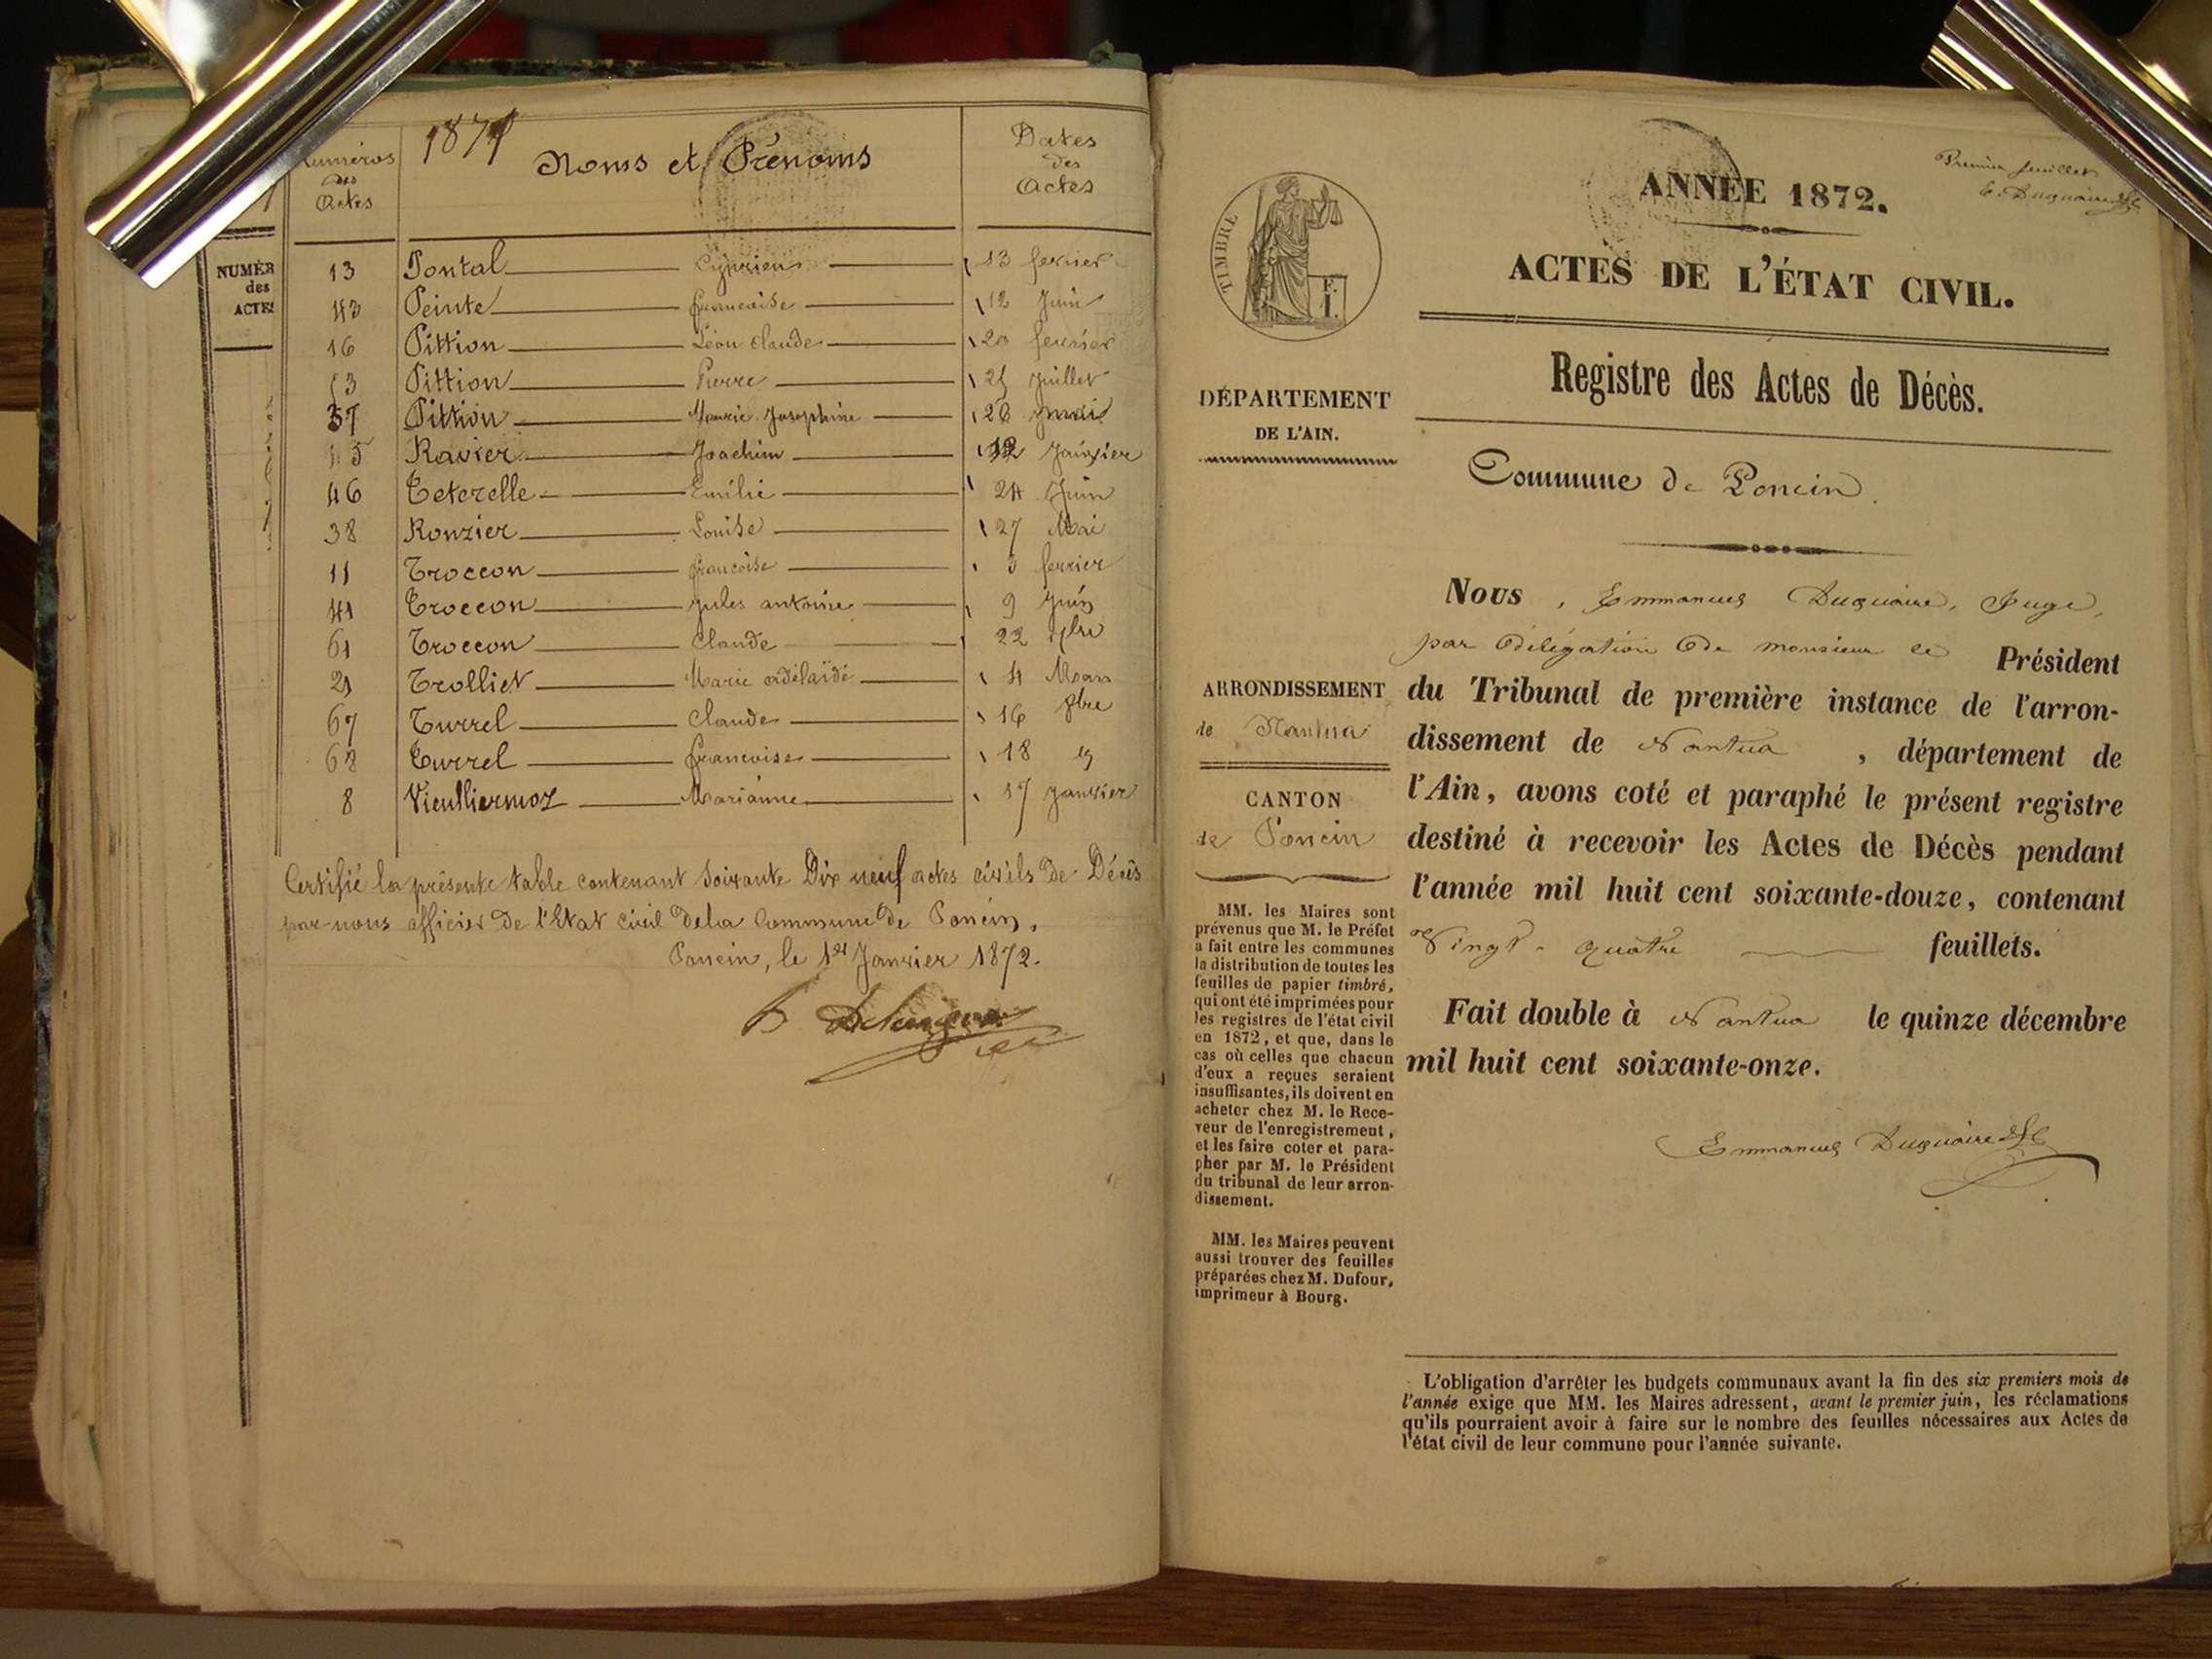 1871
Numéros des Actes
Noms et Prénoms
Dates des Actes
NUMÉR
des
ACTES
13 Pontal Cyprien 13 fevrier
43 Peinte francoise 12 Juin
16 Pittion Léon Claude 20 fevrier
53 Pittion Pierre 25 Juillet
37 Pittion Marie Josephine 26 mai
5 Ravier Joachim 12 Janvier
46 Teterelle Emilie 24 Juin
38 Ronzier Louise 27 Mai
11 Troccon francoise 3 fevrier
41 Troccon Jules antoine 9 Juin
61 Troccon Claude 22 7bre
21 Trolliet Marie adélaïde 4 Mars
67 Turrel Claude 16 8bre
68 Turrel francoise 18
8 Vieulliermoz Marianne 17 Janvier
Certifié la présente table contenant Soixante Dix neuf actes civils de Décès
par nous officier de l'Etat civil de la Commune de Poncin.
Poncin, le 1er Janvier 1872.
Premier feuillet
E. Duquaire
ANNÉE 1872.
ACTES DE L'ÉTAT CIVIL.
Registre des Actes de Décès.
Commune de Poncin.
TIMBRE
F.
I.
DÉPARTEMENT
DE L'AIN.
ARRONDISSEMENT
de Nantua
CANTON
de Poncin
MM. les Maires sont
prévenus que M. le Préfet
a fait entre les communes
la distribution de toutes les
feuilles de papier timbré,
qui ont été imprimées pour
les registres de l'état civil
en 1872, et que, dans le
cas où celles que chacun
d'eux a reçues seraient
insuffisantes, ils doivent en
acheter chez M. le Rece-
veur de l'enregistrement,
et les faire coter et para-
pher par M. le Président
du tribunal de leur arron-
dissement.
MM. les Maires peuvent
aussi trouver des feuilles
préparées chez M. Dufour,
imprimeur à Bourg.
Nous, Emmanuel Duquaire, Juge,
par délégation de monsieur le Président
du Tribunal de première instance de l'arron-
dissement de Nantua, département de
l'Ain, avons coté et paraphé le présent registre
destiné à recevoir les Actes de Décès pendant
l'année mil huit cent soixante-douze, contenant
Vingt-quatre feuillets.
Fait double à Nantua le quinze décembre
mil huit cent soixante-onze.
Emmanuel Duquaire
L'obligation d'arrêter les budgets communaux avant la fin des six premiers mois de
l'année exige que MM. les Maires adressent, avant le premier juin, les réclamations
qu'ils pourraient avoir à faire sur le nombre des feuilles nécessaires aux Actes de
l'état civil de leur commune pour l'année suivante.